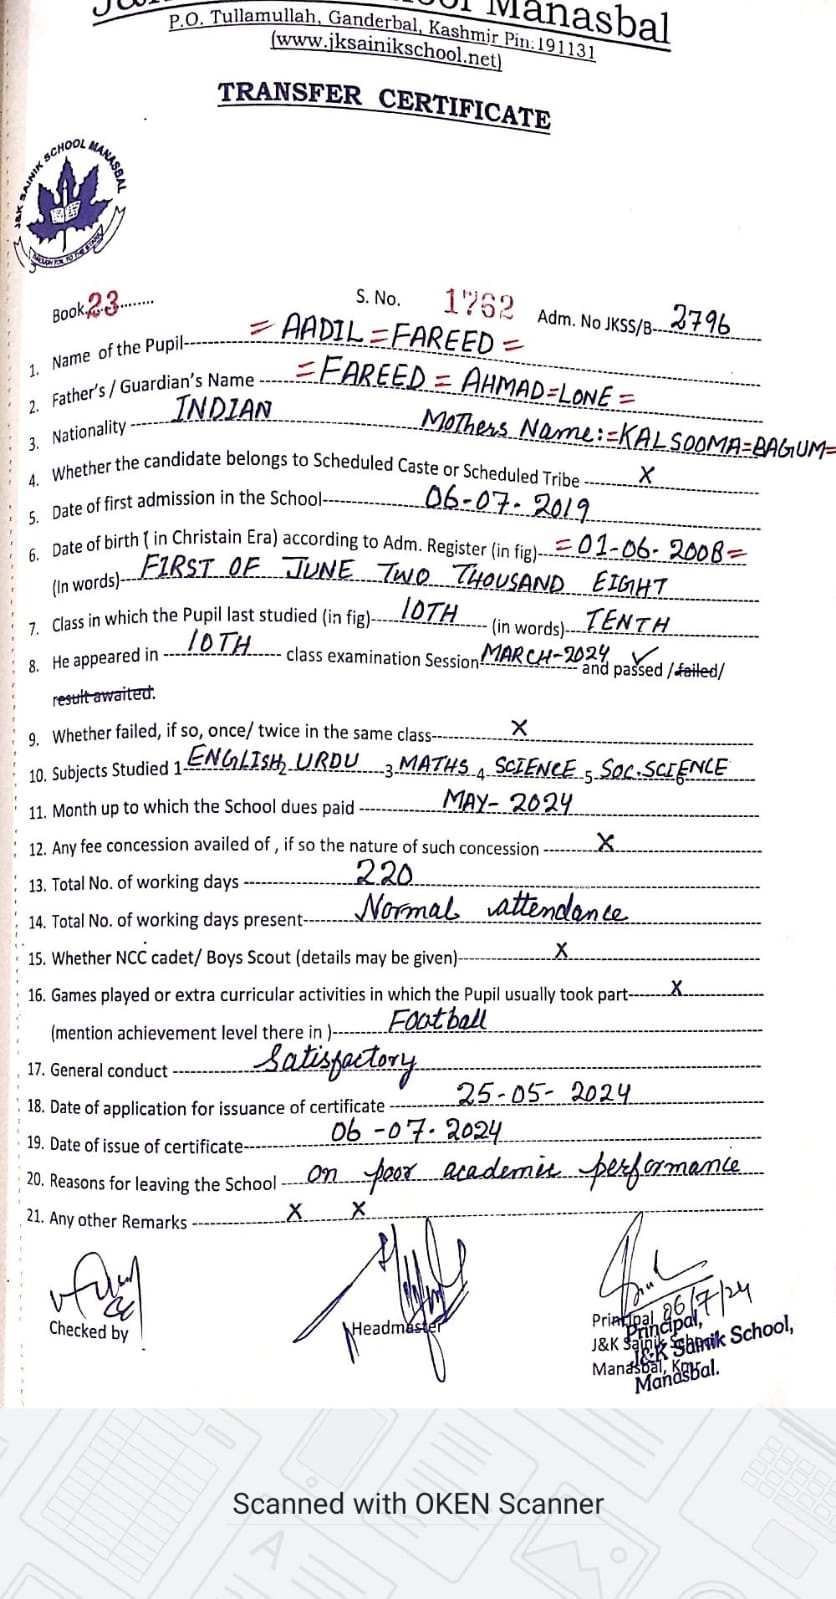 Manasbal
P.O. Tullamullah, Ganderbal, Kashmir Pin:191131
(www.jksainikschool.net)
TRANSFER CERTIFICATE
J&K SAINIK SCHOOL MANASBAL
Book 23........ S. No. 1762 Adm. No JKSS/B--- 2796
1. Name of the Pupil--- = AADIL = FAREED =
2. Father's / Guardian's Name --- = FAREED = AHMAD = LONE =
3. Nationality --- INDIAN Mothers Name:- =KALSOOMA=BAGUM=
4. Whether the candidate belongs to Scheduled Caste or Scheduled Tribe --- X
5. Date of first admission in the School--- 06-07-2019
6. Date of birth ( in Christain Era) according to Adm. Register (in fig)--- =01-06-2008=
(In words)--- FIRST OF JUNE TWO THOUSAND EIGHT
7. Class in which the Pupil last studied (in fig)--- 10TH --- (in words)--- TENTH
8. He appeared in --- 10TH --- class examination Session MARCH-2024 and passed ✓ /failed/
result awaited.
9. Whether failed, if so, once/ twice in the same class--- X
10. Subjects Studied 1 ENGLISH 2 URDU 3 MATHS 4 SCIENCE 5 SOC.SCIENCE 6
11. Month up to which the School dues paid --- MAY-2024
12. Any fee concession availed of , if so the nature of such concession --- X
13. Total No. of working days --- 220
14. Total No. of working days present--- Normal attendance
15. Whether NCC cadet/ Boys Scout (details may be given)--- X
16. Games played or extra curricular activities in which the Pupil usually took part--- X
(mention achievement level there in )--- Football
17. General conduct --- Satisfactory
18. Date of application for issuance of certificate --- 25-05-2024
19. Date of issue of certificate--- 06-07-2024
20. Reasons for leaving the School --- on poor academic performance
21. Any other Remarks --- X X
Checked by
Headmaster
06/7/24
Principal
J&K Sainik School
Manasbal, Kmr.
Principal,
J&K Sainik School,
Manasbal.
Scanned with OKEN Scanner